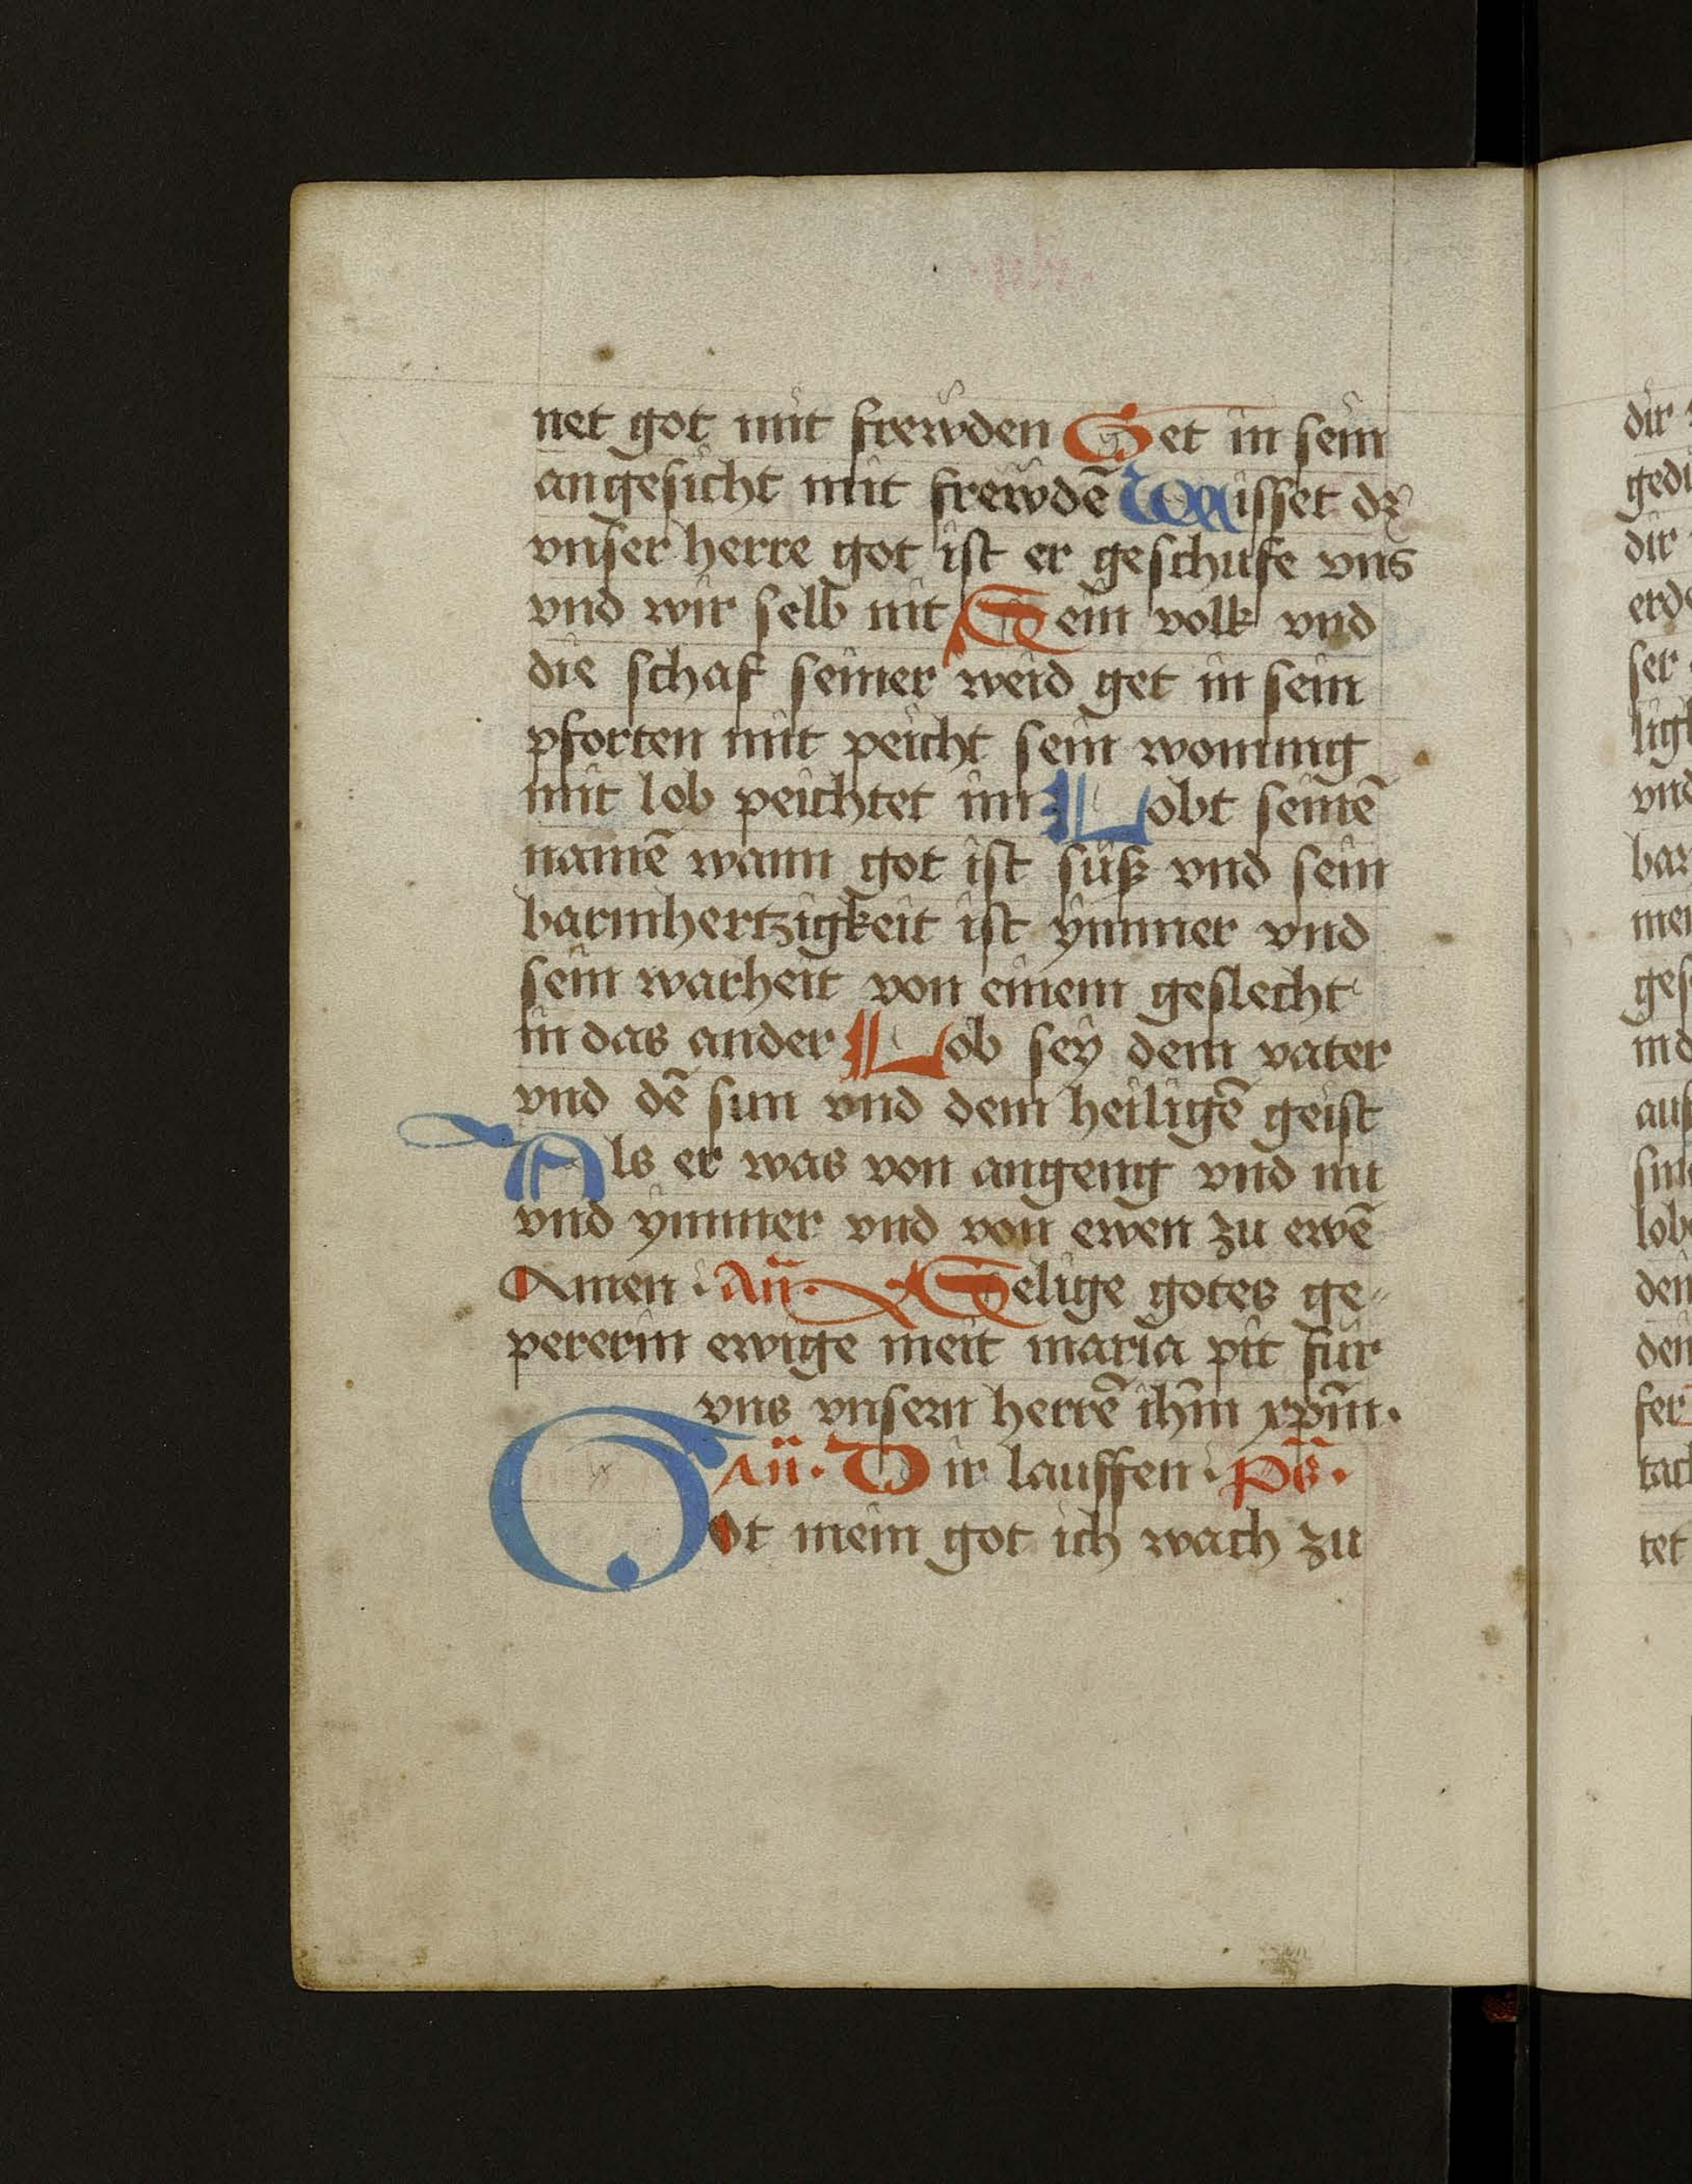 net got mit frewden Get in sein
angesicht mit frewdē Wisset dz
vnser herre got ist er geschufe vns
vnd wir selb nit Sein volk vnd
die schaf seiner weid get in sein
pforten mit peicht sein wonung
mit lob peichtet im Lobt seinē
namē wann got ist süß vnd sein
barmhertzigkeit ist ymmer vnd
sein warheit von einem geslecht
in das ander Lob sey dem vater
vnd dē sun vnd dem heiligē geist
Als er was von angeng vnd nu
vnd ymmer vnd von ewen zu ewē
Amen · Añ· Selige gotes ge⸗
pererin ewige meit maria pit für
vns vnsern herrē ihm̄ xpm̄·
Añ· Dir lauffen · Ps̄·
Got mein got ich wach zu
dir
gedi
dir
erde
ser
ligk
vnd
bar
mei
ges
ind
auf
sun
lob
den
den
fer
tach
tet